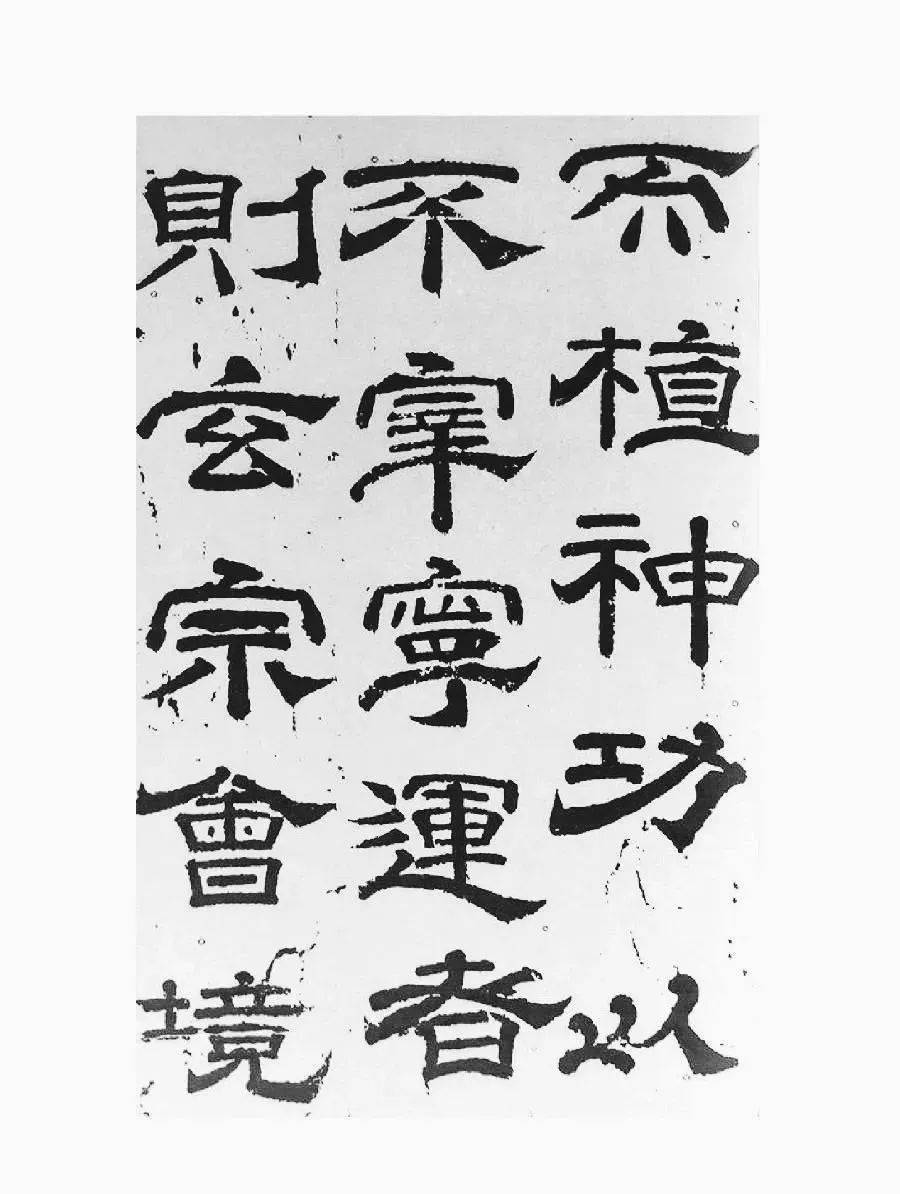 而植神功以
不宰寧運者
則玄宗會境